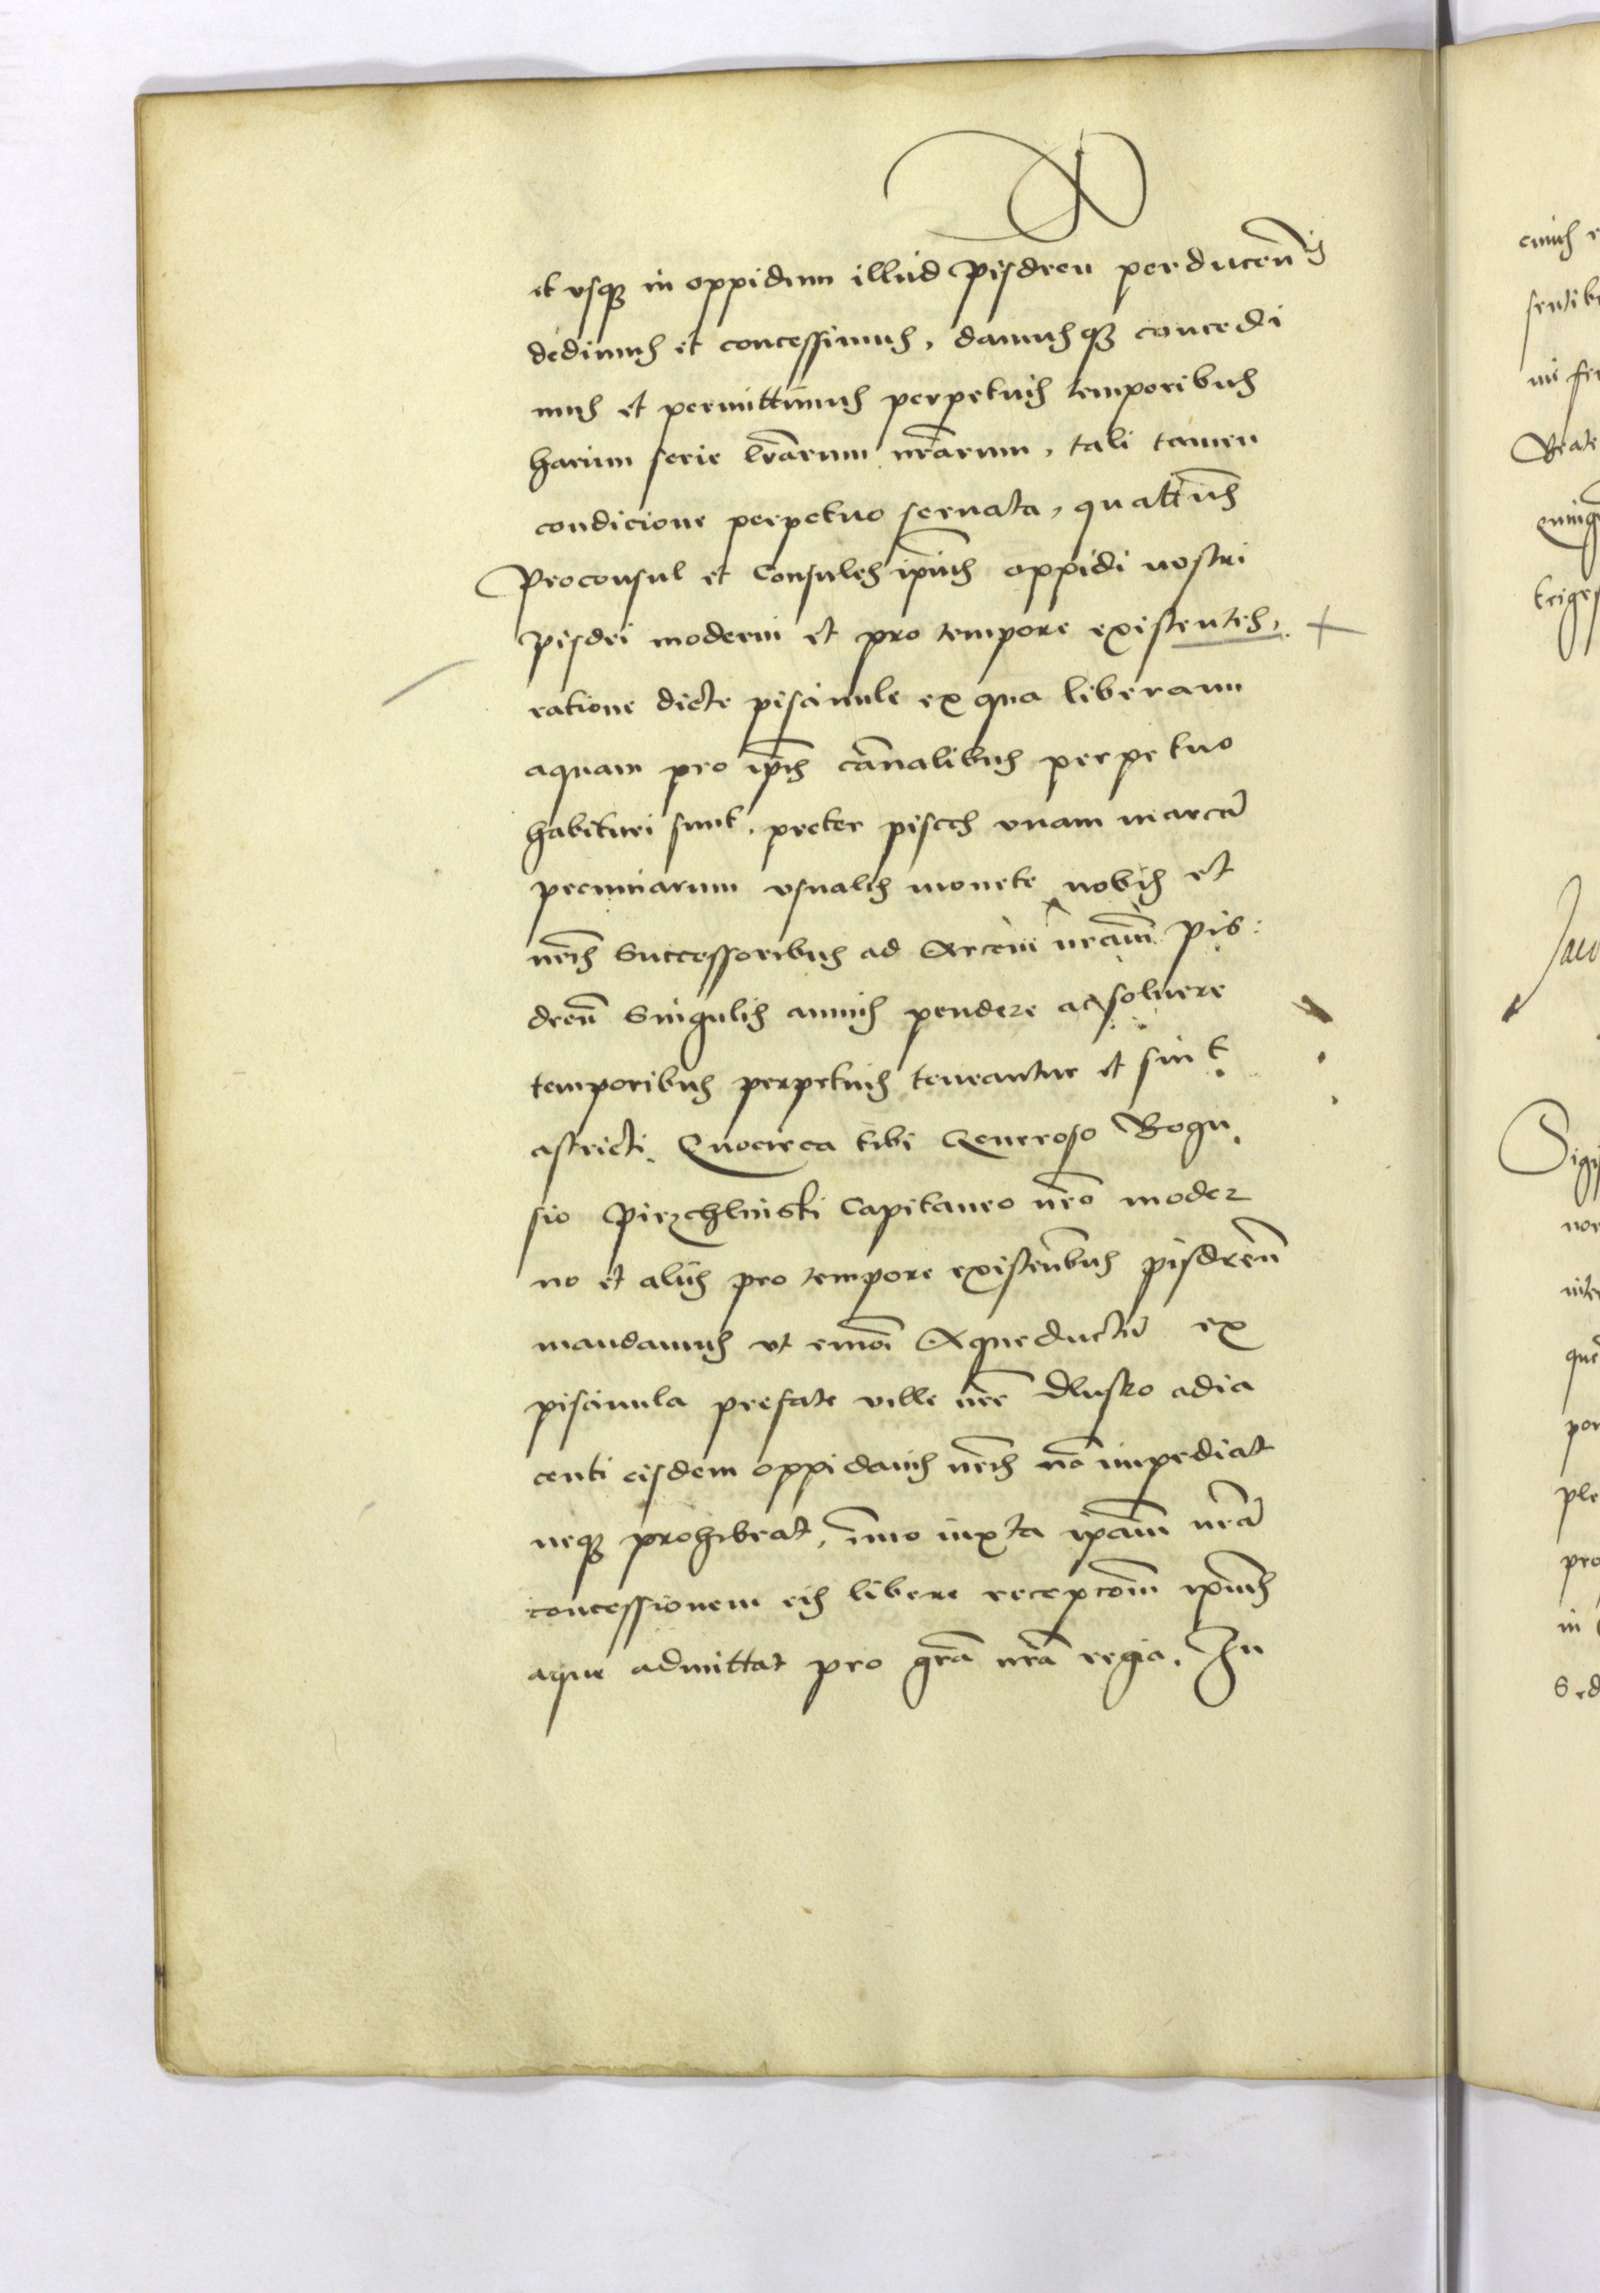 et vsq3 in oppidum illud Pisdren perducen̄
dedimus et concessimus, damusq3 concedi
mus et permittimus perpetuis temporibus
harum serie l̄rarum n̄rarum, tali tamen
condicione perpetuo seruata, quat̄t̄us
Proconsul et Consules ip̄ius oppidi nostri
Pisdri moderni et pro tempore existentes,
ratione dicte piscinule ex qua liberam
aquam pro ip̄is cān̄alibus perpetuo
habituri sunt, preter pisces vnam marcā
pecuniarum vsualis monete nobis et
n̄ris Successoribus ad Arcem n̄ram̄ Pis:
dren̄ Singulis annis pendere ac soluere
temporibus perpetuis teneantur et sint
astricti. Quocirca tibi Generoso Bogu
sio Pirzchlinski Capitaneo n̄ro moder
no et alijs pro tempore existen̄bus pisdren̄
mandamus vt Aqueductū ex
piscinula prefate ville n̄re Dlusko adia
centi eisdem oppidanis n̄ris nō impediat
neq3 prohibeat, īmo iuxta ip̄am̄ n̄rā
concessionem eis libere recepcōm̄ ip̄ius
aque admittat pro gr̄a n̄ra regia. In
cuius
Beate
Jaco
Sigi
ple
pro
in
Sed